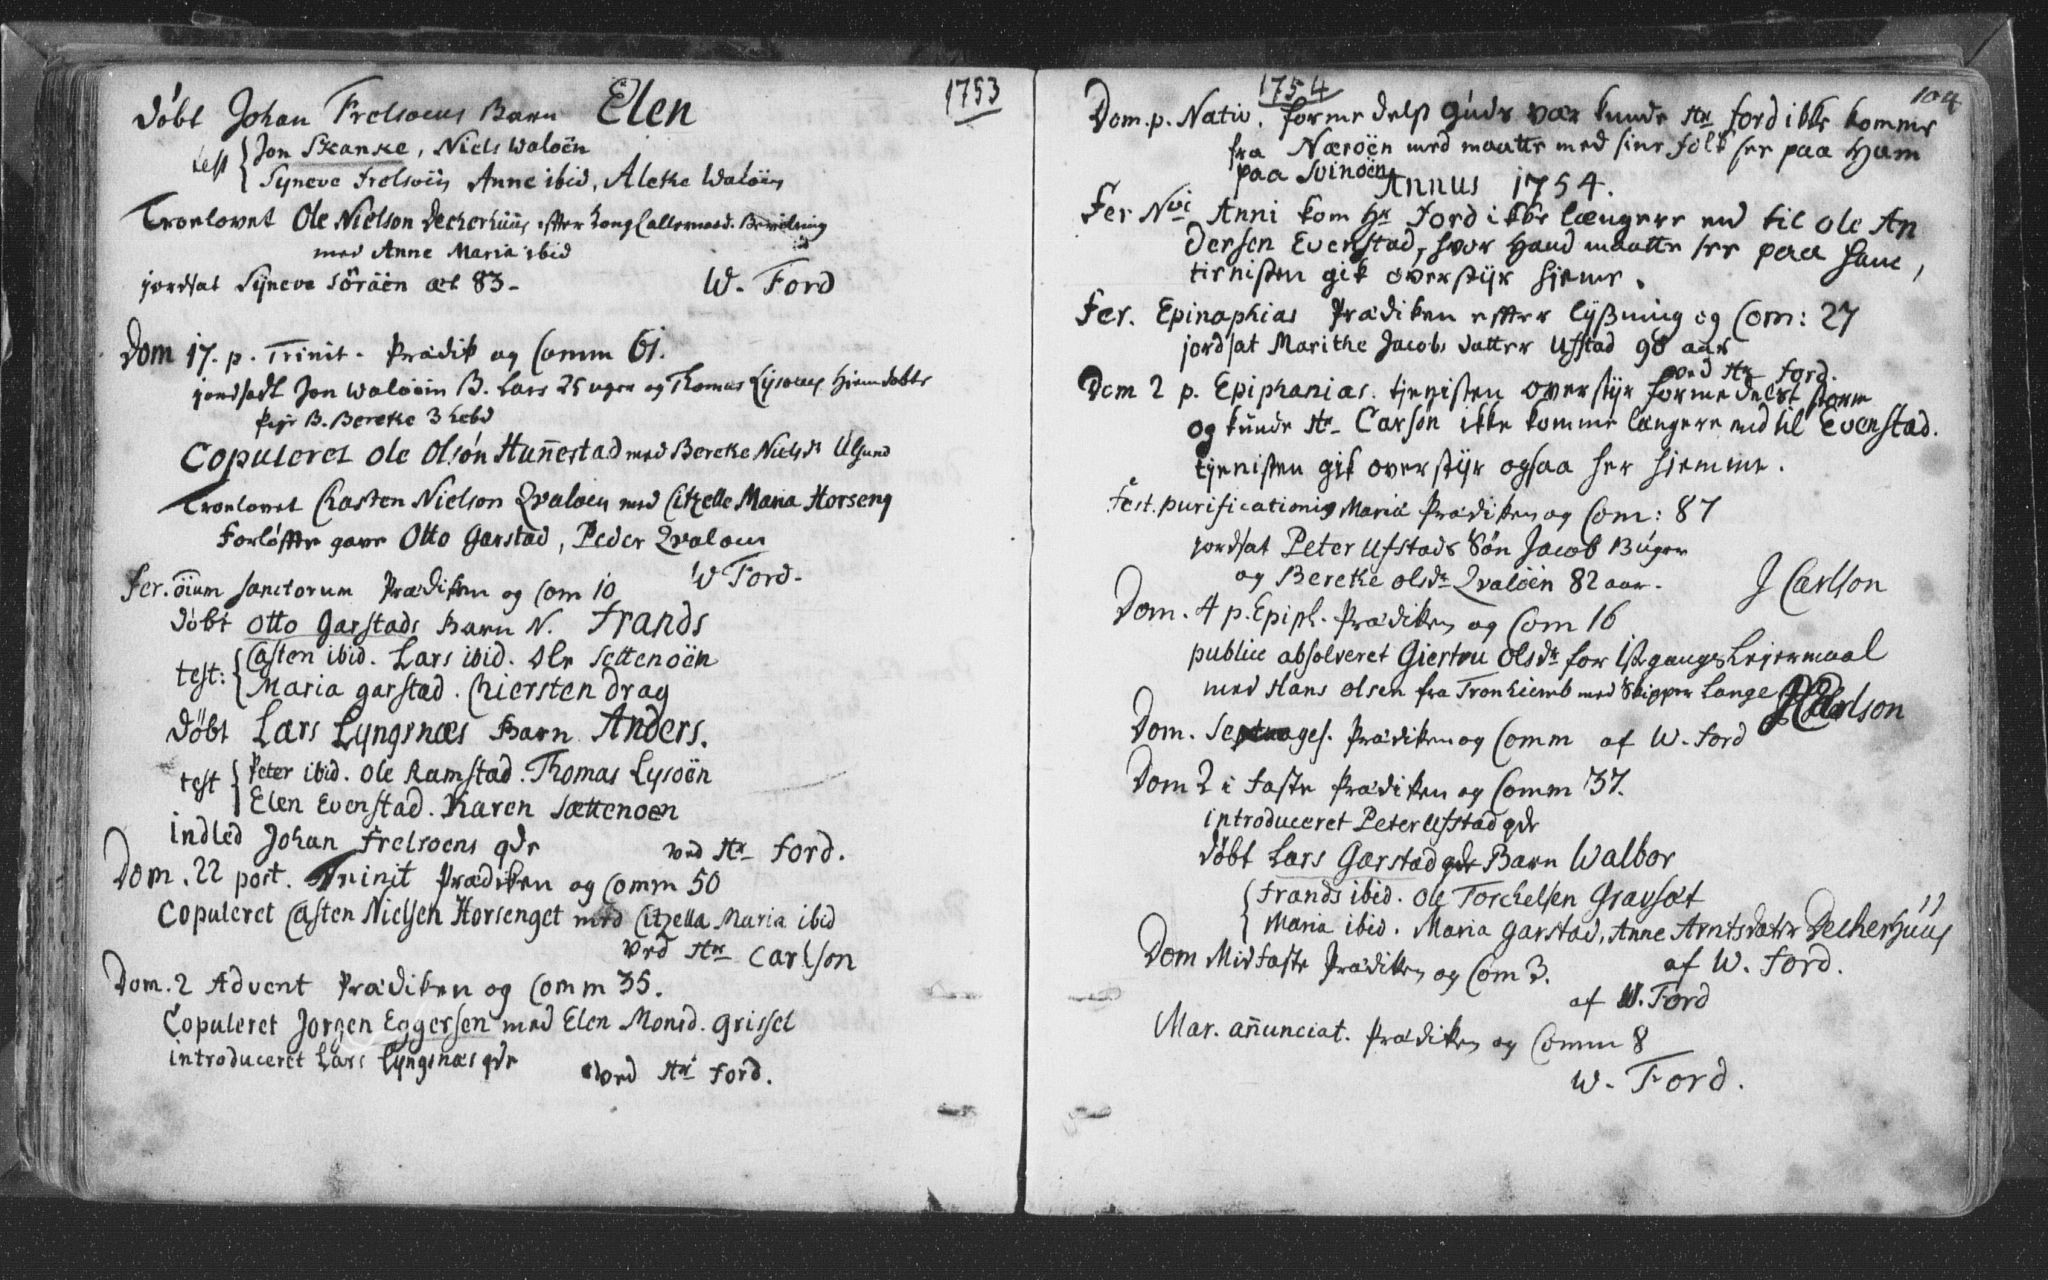 1753
døbt Johan Frelsøens Barn Elen
test Jon Skanke, Niels Waløen
Syneve Frelsøen Anne ibid, Aleke Waløen
Troelovet Ole Nielson Deckerhuus efter Kongl allernaad. Bevilning
med Anne Maria ibid
jordsat Syneve Sørøen æt 83 -
W. Ford
Dom 17. p. Trinit. Prædik og Comm 61.
jordsadt Jon Waløen B. Lars 25 uger og Thomas Lysøens hiemdøbte
Pige B. Bereke 3
Copuleret Ole Olsøn Hunestad med Bereke Nielsdr Ulsund
Troelovet Chasten Nielson Qvaløen med Citzelle Maria Horseng
Forløffte gave Otto Garstad, Peder Qvaløen
W Ford.
Fer. oium Sanctorum Prædiken og Com 10
døbt Otto Garstads Barn N. Frands
test: Casten ibid. Lars ibid. Ole Settenoën
Maria garstad. Chiersten Drag
døbt Lars Lyngsnæs Barn Anders.
test Peter ibid. Ole Ramstad. Thomas Lysoën
Elen Evenstad. Karen Sættenoen
indled Johan Frelsoens qde
ved Hr Ford.
Dom. 22 post. Trinit Prædiken og Comm 50
Copuleret Casten Nielsen Horsenget med Citzella Maria ibid
ved Hr Carlson
Dom. 2 Advent Prædiken og Comm 35.
Copuleret Jorgen Eggersen med Elen Monsd. Grissel
introduceret Lars Lyngsnæs qde
ved Hr Ford.
1754
104
Dom. p. Nativ. formedelst Guds vær kunde Hr Ford ikke komme
fra Næroën med maatte med sine folk see paa Ham
paa Svinoën
Annus 1754.
Fer Nvi Anni kom Hr Ford ikke længere end til Ole An
dersen Evenstad, hvor Hand maatte see paa Ham,
tienisten gik overstyr hieme.
Fer. Epinaphias Prædiken effter lyßning og Com: 27
jordsat Marithe Jacobs datter Ufstad 98 aar
ved Hr Ford.
Dom 2 p. Epiphanias. tjenisten overstyr formedelst storm
og kunde Hr Carson ikke komme længere end til Evenstad.
tjenisten gik overstyr ogsaa her hjemme.
Fest. purificationis Mariæ Prædiken og Com: 87
jordsat Peter Ufstads Søn Jacob Buger
og Bereke Olsdr Qvaløen 82 aar.
J Carlson
Dom. 4 p. Epiph. Prædiken og Com 16
publice absolveret Giertru Olsdr for 1st gangs Leiermaal
med Hans Olsen fra Tronhiemb med Skipper Lange
J Carlson
Dom. Septuages. Prædiken og Comm af W. Ford
Dom 2 i Faste Prædiken og Comm 37.
introduceret Peter Ufstad qde
døbt Lars Garstad qde Barn Walbor
Frands ibid. Ole Torchelsen Gravsæt
Maria ibid. Maria Garstad, Anne Arntsdatter Decherhuus
af W. Ford.
Dom Midfaste Prædiken og Com 3.
af W. Ford
Mar. añunciat. Prædiken og Comm 8
W. Ford.